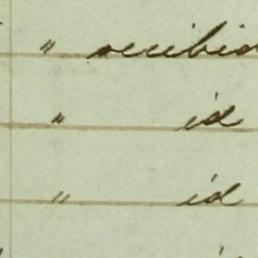 " recibid
" id
" id